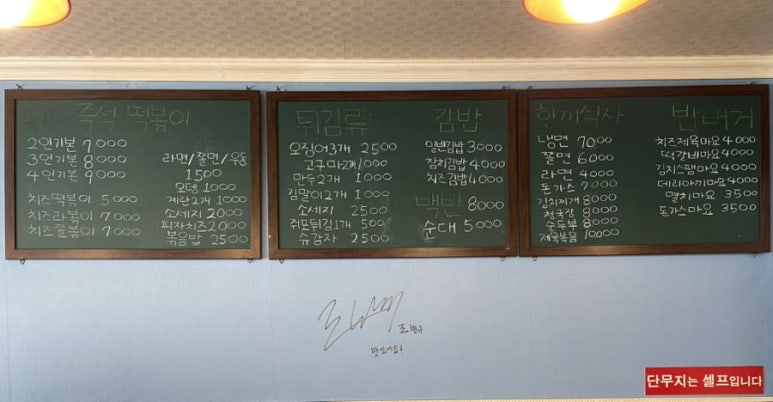 즉석 떡볶이
2인기본 7000
3인기본 8000
4인기본 9000
치즈떡볶이 5000
치즈라볶이 7000
치즈쫄볶이 7000
라면/쫄면/우동
1500
오뎅 1000
계란2개 1000
소세지 2000
피자치즈 2000
볶음밥 2500
튀김류
오징어3개 2500
고구마2개 1000
만두2개 1000
김말이2개 1000
소세지 2500
쥐포튀김1개 500
슈감자 2500
김밥
일반김밥 3000
참치김밥 4000
치즈김밥 4000
백반 8000
순대 5000
한끼식사
냉면 7000
쫄면 6000
라면 4000
돈가스 7000
김치찌개 8000
청국장 8000
순두부 8000
제육볶음 10000
밥버거
치즈제육마요 4000
떡갈비마요 4000
김치스팸마요 4000
데리야끼마요 4000
멸치마요 3500
돈가스마요 3500
맛있어요!
단무지는 셀프입니다